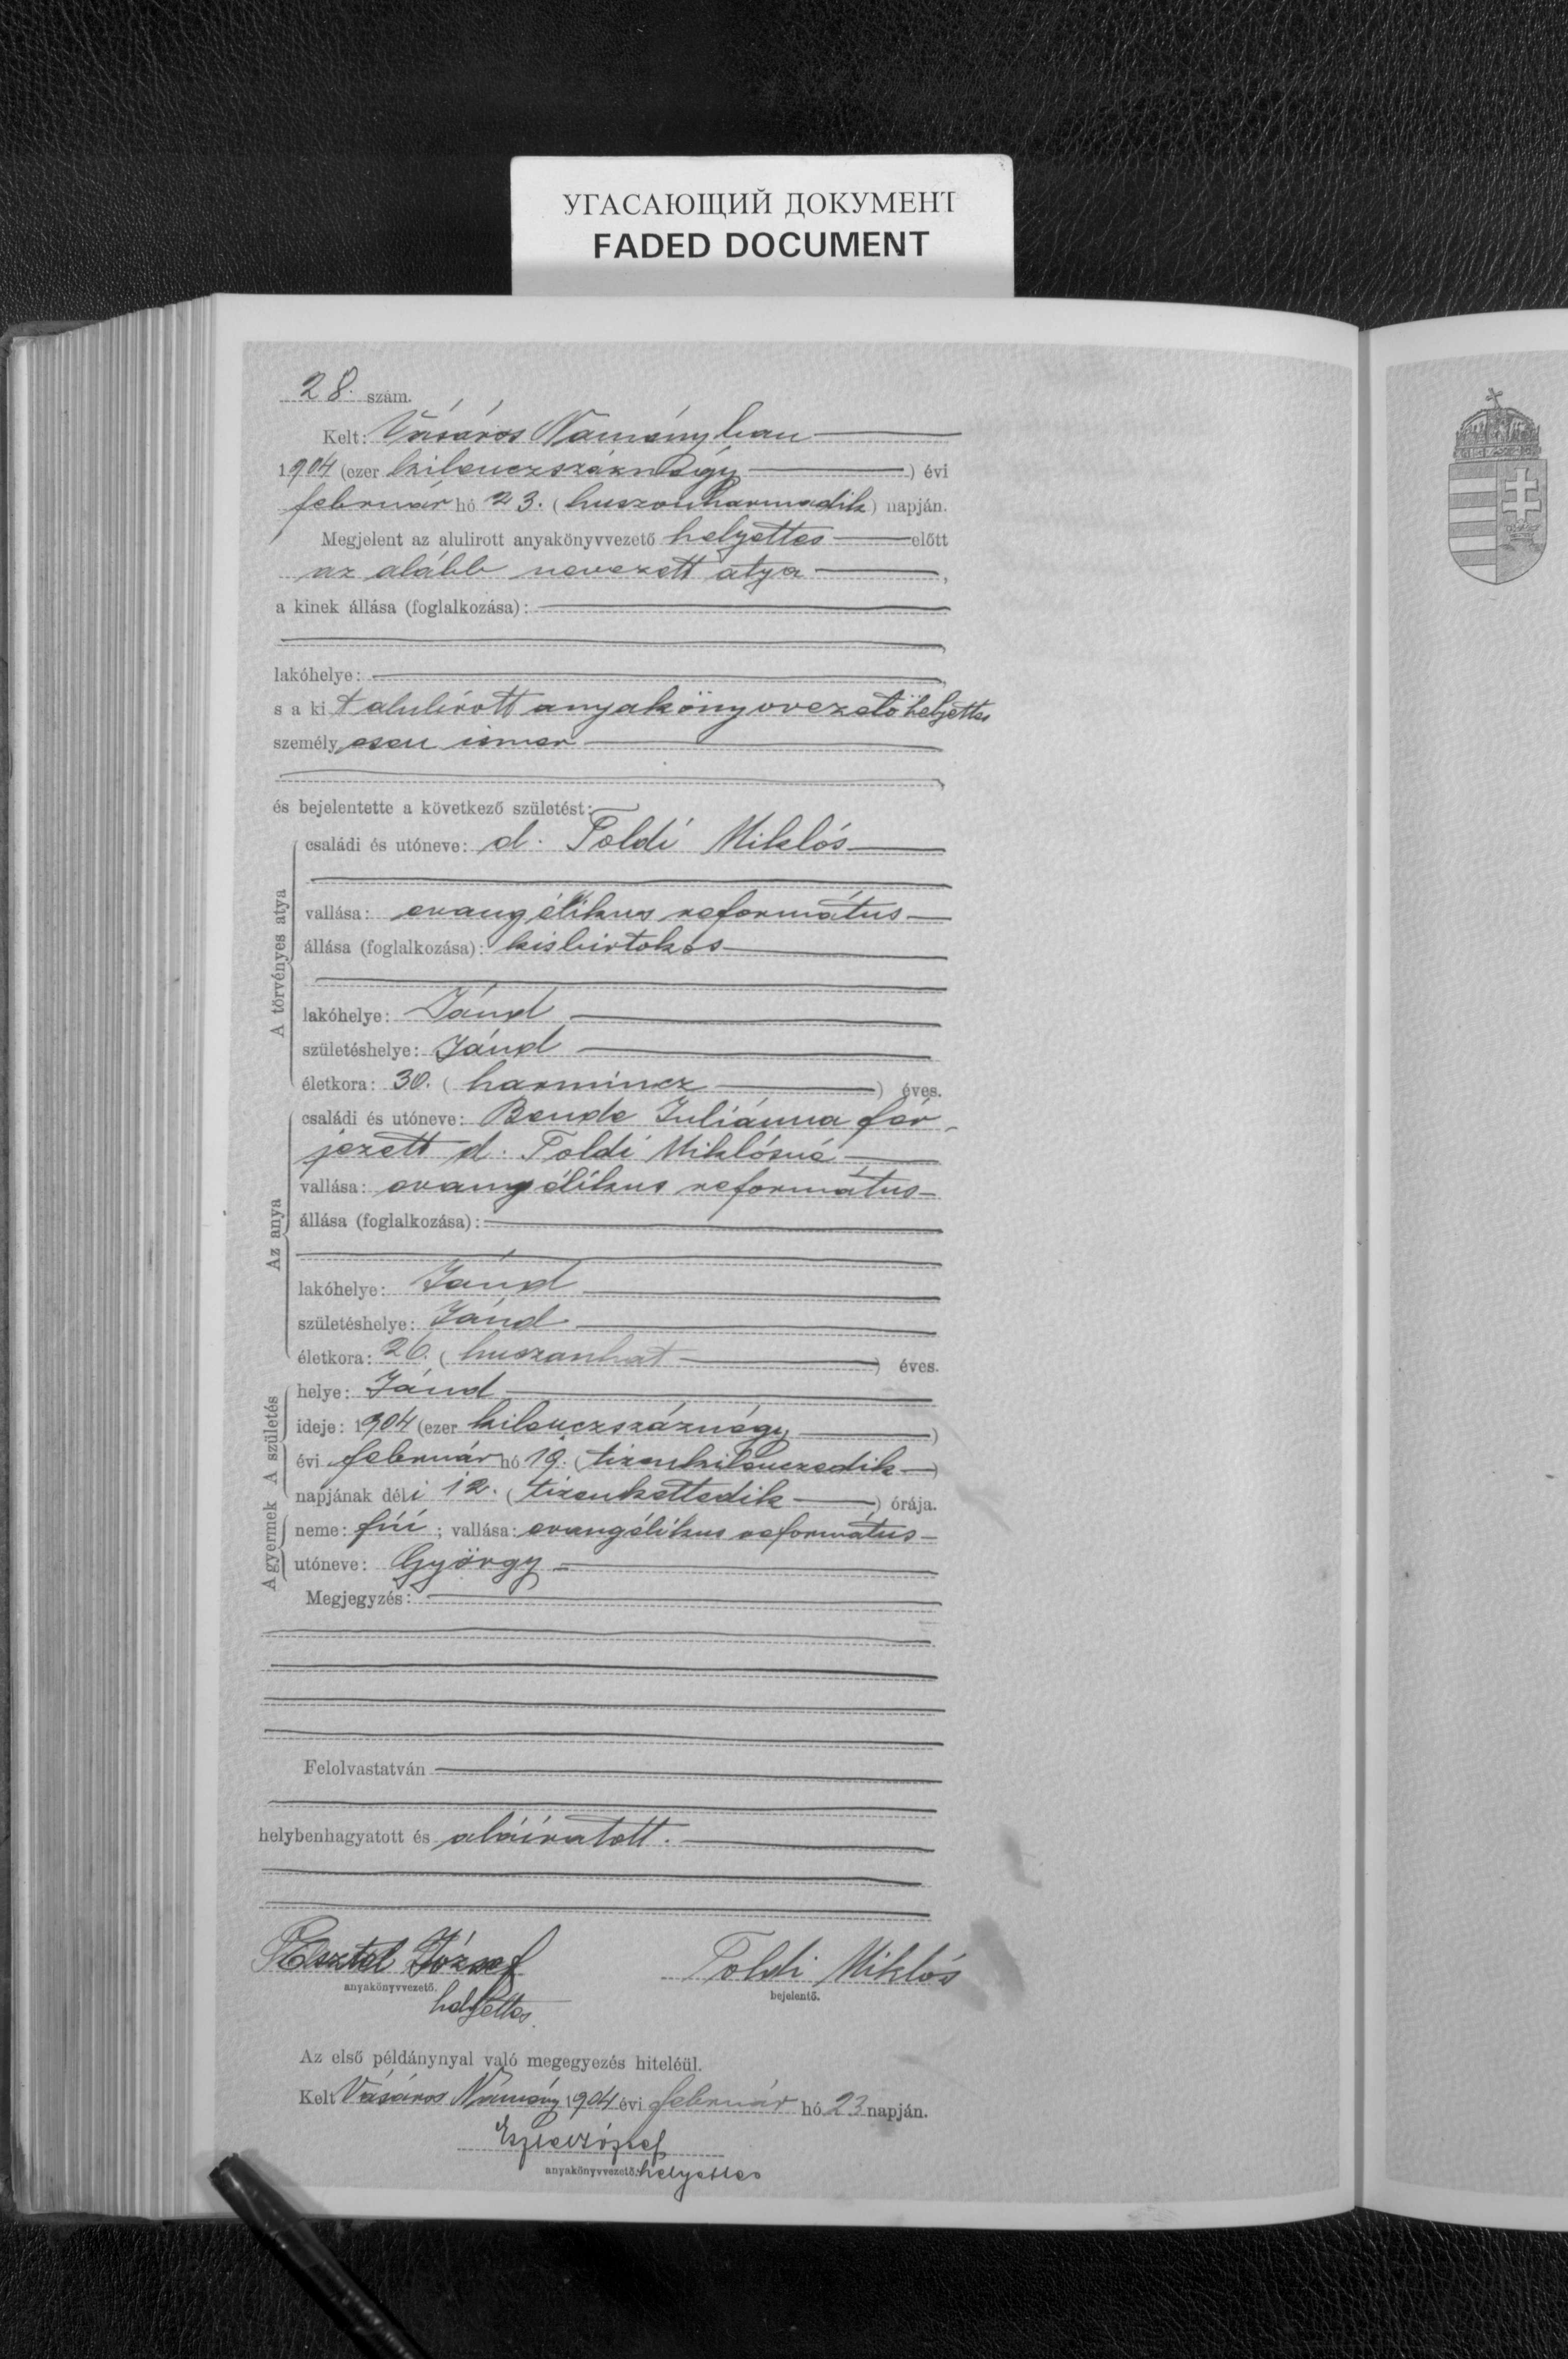 УГАСАЮЩИЙ ДОКУМЕНТ
FADED DOCUMENT
28. szám.
Kelt: Vásáros Naményban
1904 (ezer kilenczszáznégy) évi
február hó 23. (huszonharmadik) napján.
Megjelent az alulirott anyakönyvvezető helyettes előtt
az alább nevezett atya,
a kinek állása (foglalkozása):
lakóhelye:
s a kit alulírott anyakönyvvezető helyettes
személyesen ismer
és bejelentette a következő születést:
A törvényes atya
családi és utóneve: d. Toldi Miklós
vallása: evangélikus református
állása (foglalkozása): kisbirtokos
lakóhelye: Jánd
születéshelye: Jánd
életkora: 30. (harmincz) éves.
Az anya
családi és utóneve: Bende Juliánna fér-
jezett d. Toldi Miklósné
vallása: evangélikus református
állása (foglalkozása):
lakóhelye: Jánd
születéshelye: Jánd
életkora: 26. (huszonhat) éves.
A születés
helye: Jánd
ideje: 1904 (ezer kilenczszáznégy)
évi február hó 19. (tizenkilenczedik)
napjának déli 12. (tizenkettedik) órája.
A gyermek
neme: fiú; vallása: evangélikus református
utóneve: György
Megjegyzés:
Felolvastatván
helybenhagyatott és aláiratott.
József Toldi Miklós
anyakönyvvezető. bejelentő.
helyettes.
Az első példánynyal való megegyezés hiteléül.
Kelt Vásáros Namény 1904 évi február hó 23 napján.
József
anyakönyvvezető. helyettes